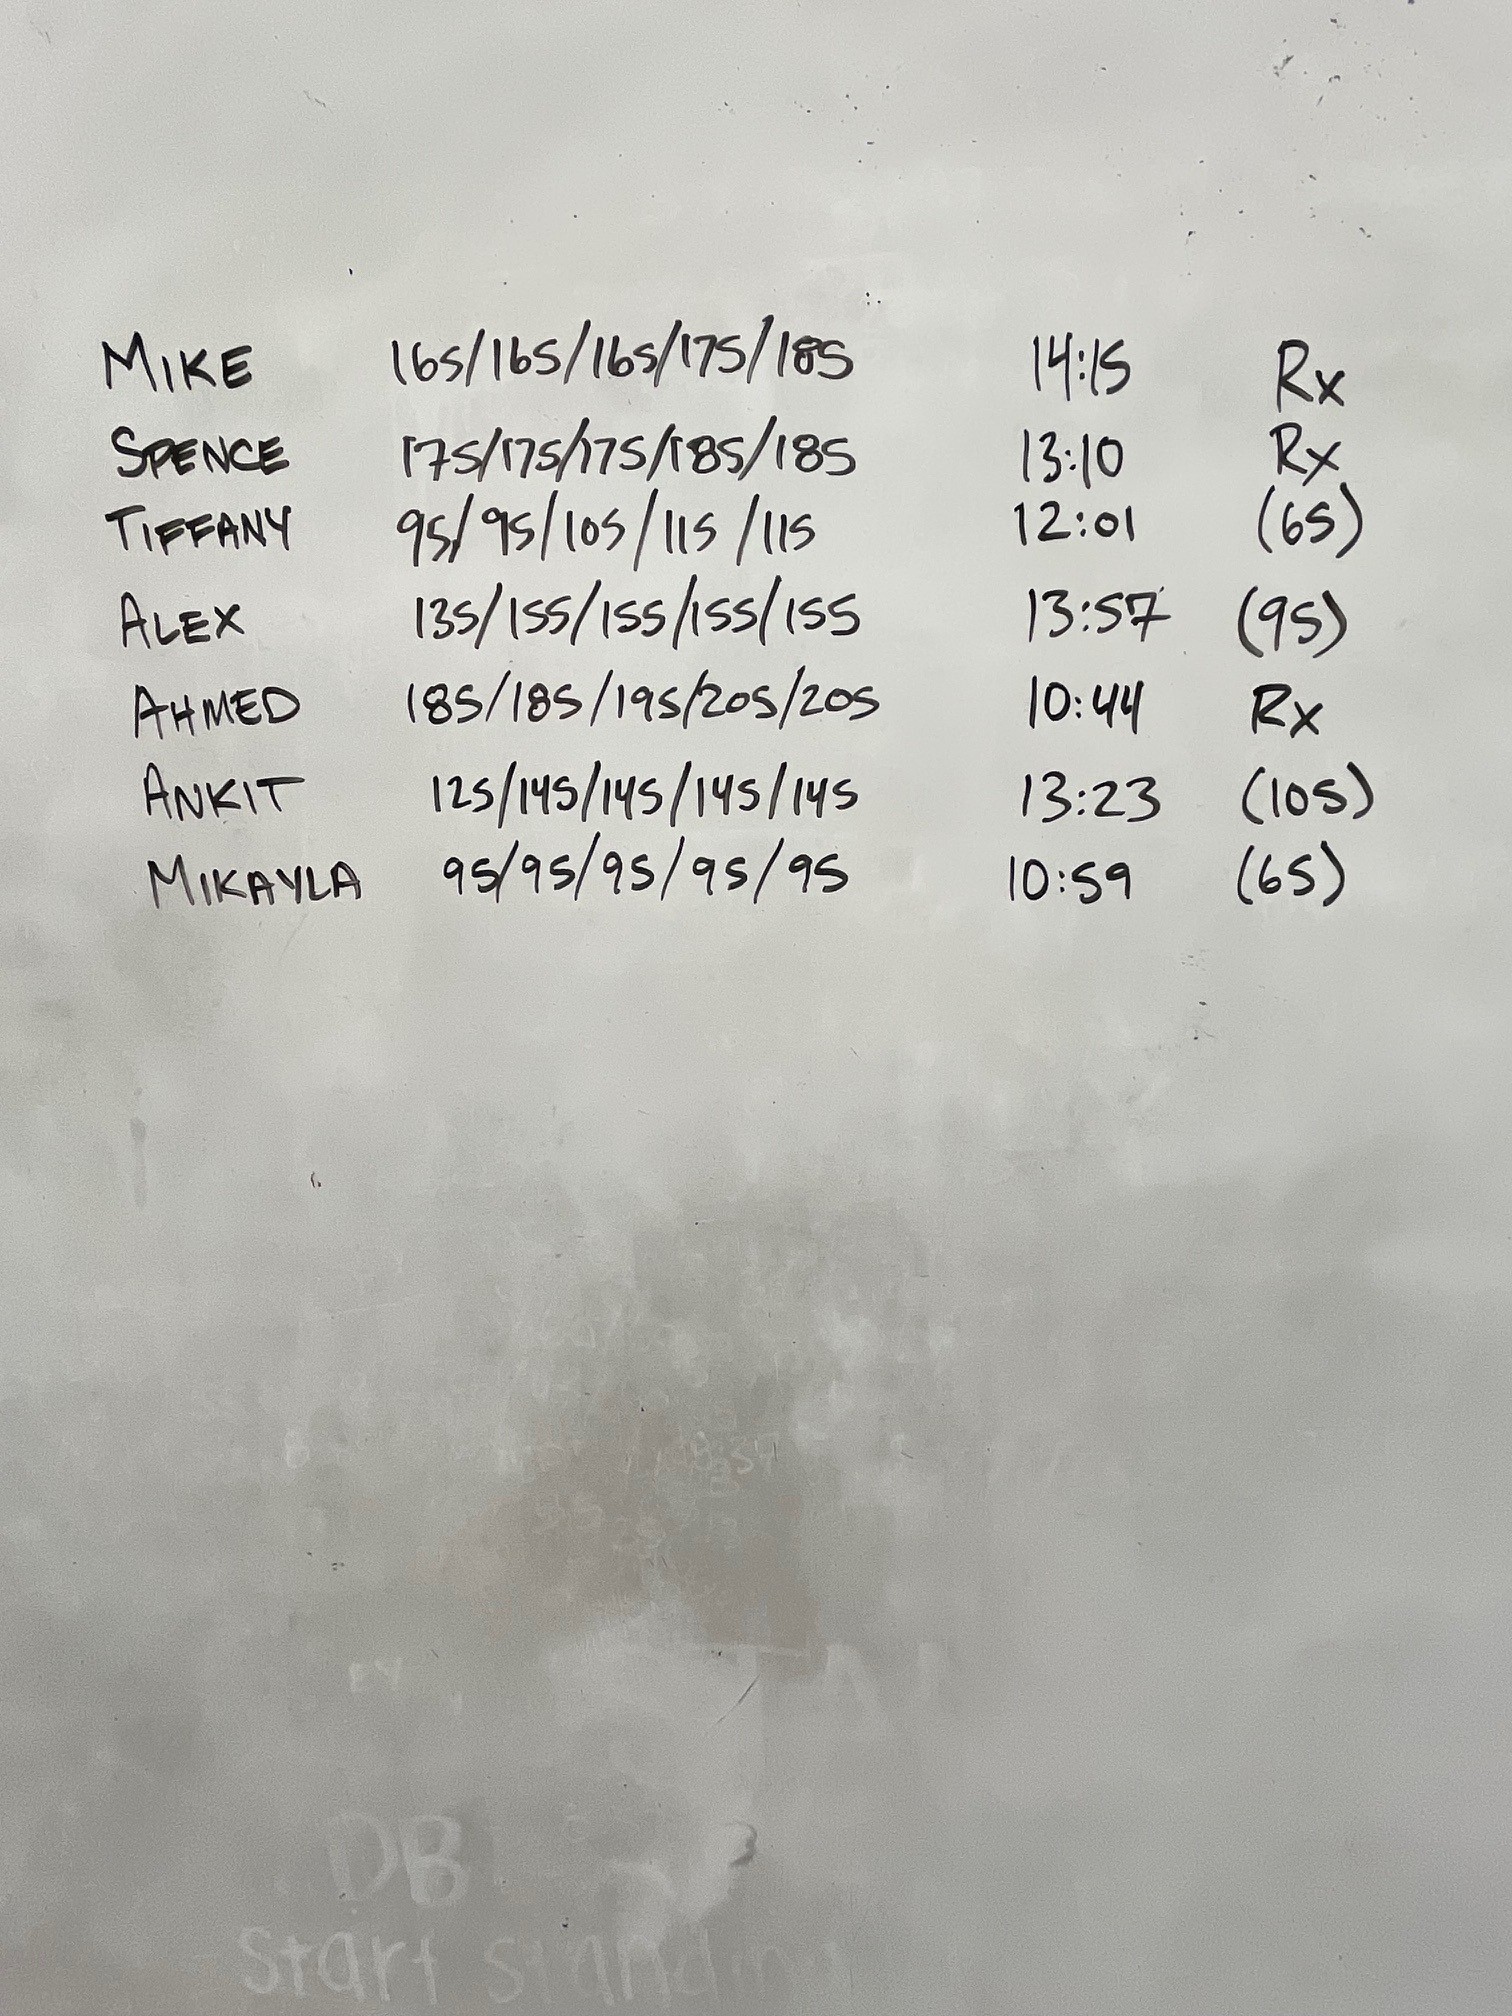 MIKE 165/165/165/175/185 14:15 Rx
SPENCE 175/175/175/185/185 13:10 Rx
TIFFANY 95/95/105/115/115 12:01 (65)
ALEX 135/155/155/155/155 13:57 (95)
AHMED 185/185/195/205/205 10:44 Rx
ANKIT 125/145/145/145/145 13:23 (105)
MIKAYLA 95/95/95/95/95 10:59 (65)
DB
Start